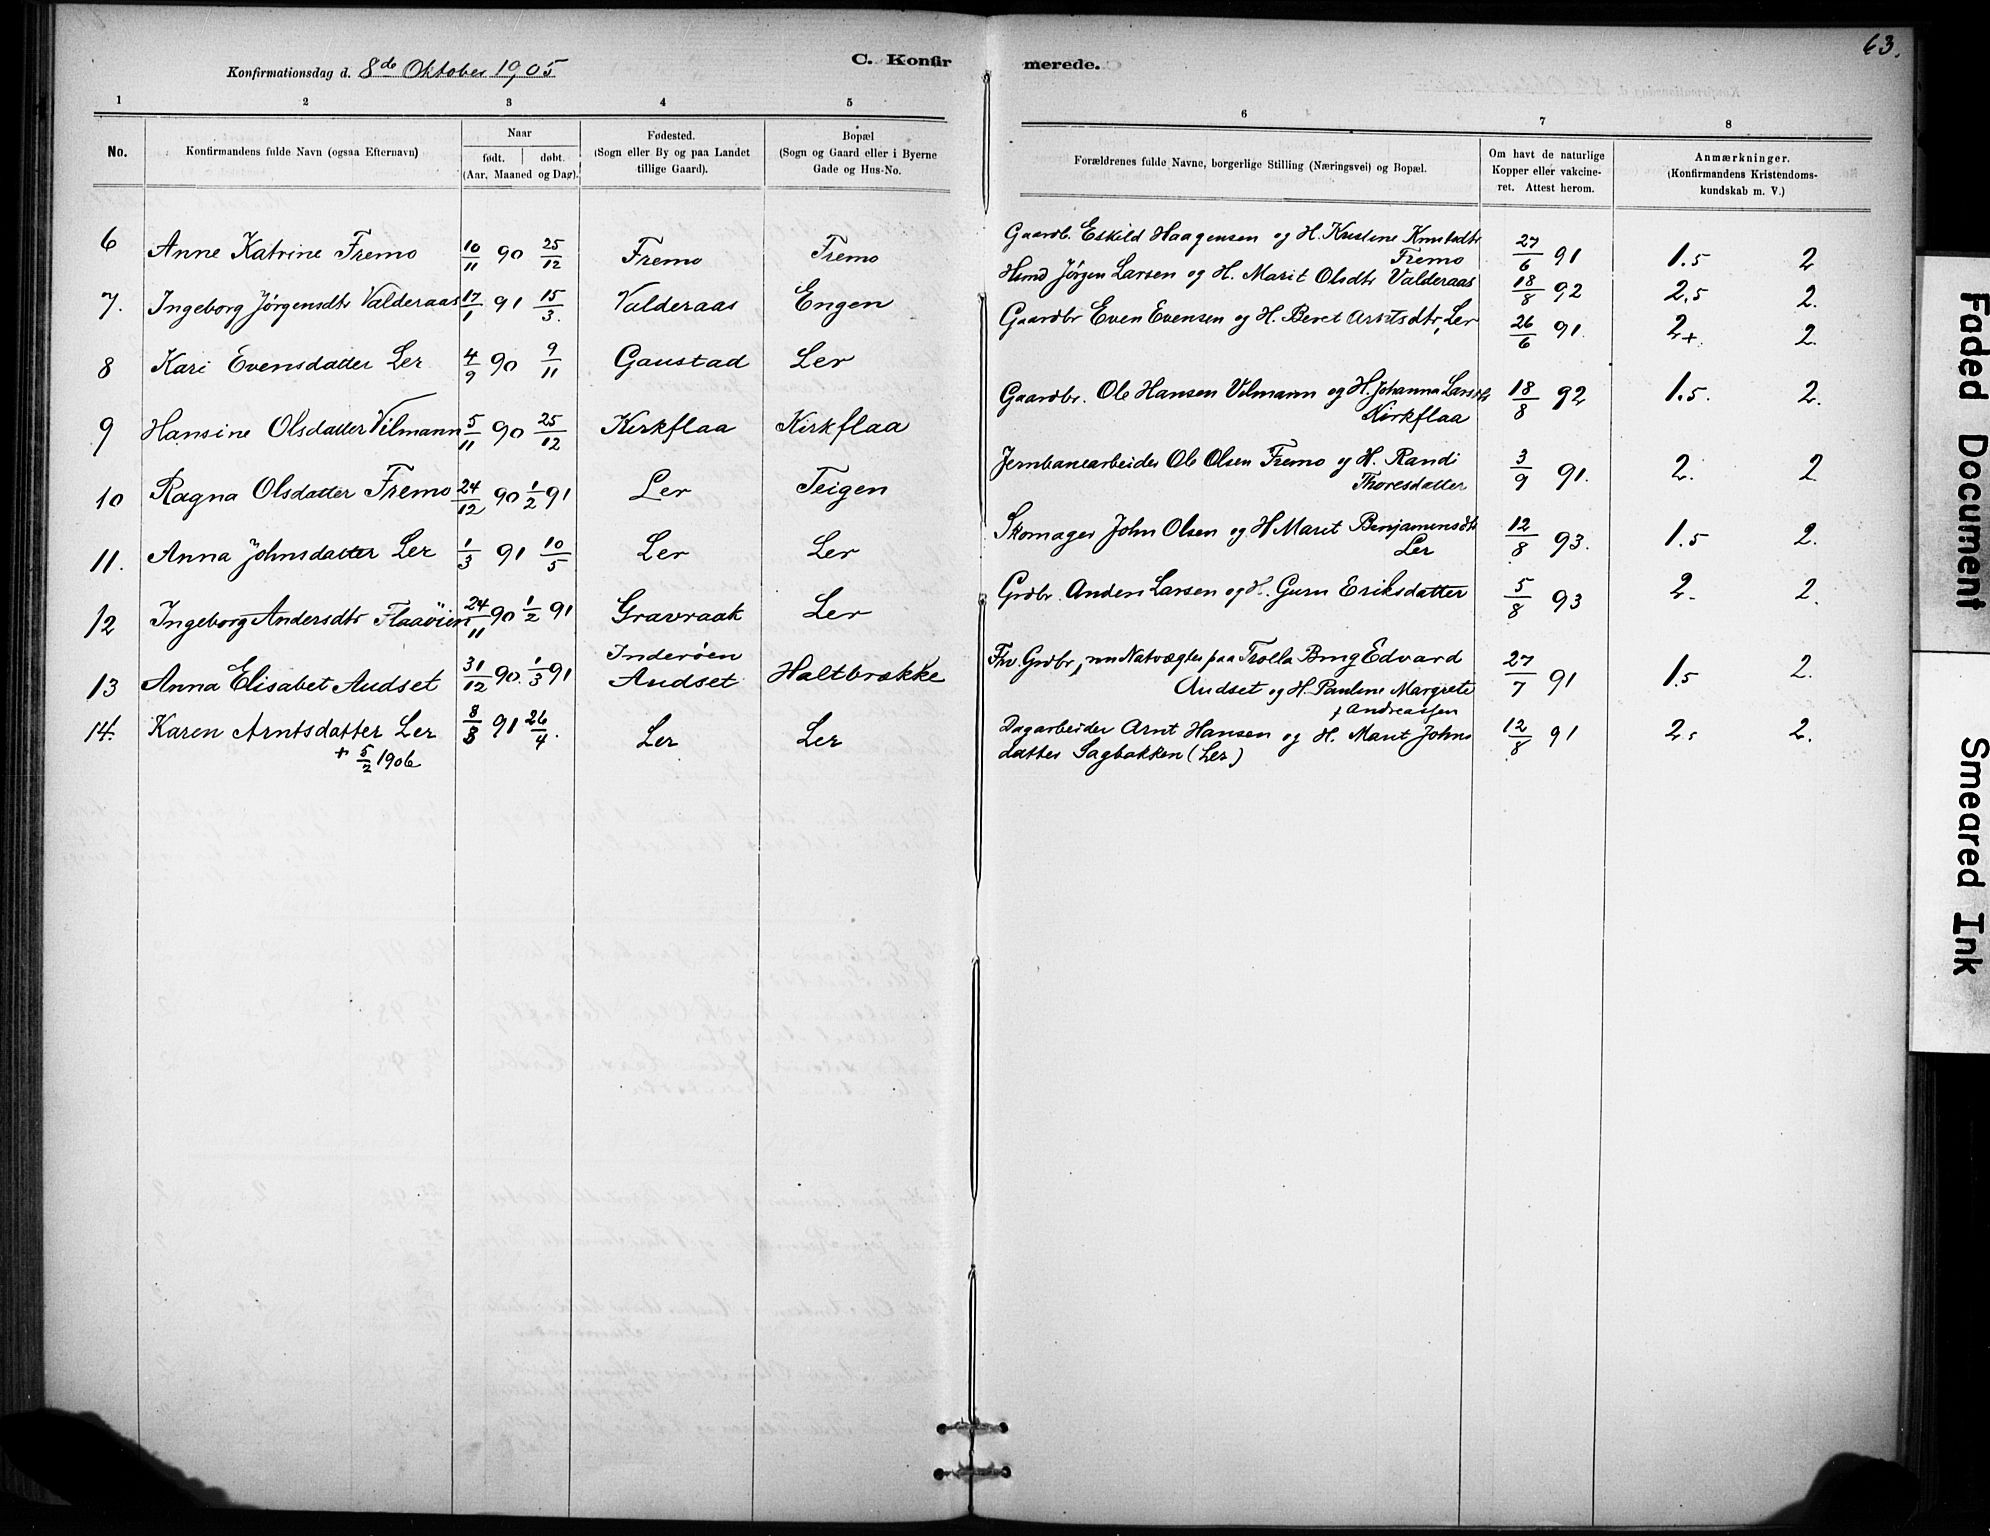 63.
C. Konfirmerede.
Konfirmationsdag d. 8de Oktober 1905
1 2 3 4 5 6 7 8
No.
Konfirmandens fulde Navn (ogsaa Efternavn)
Naar
født. | døbt.
(Aar, Maaned og Dag).
Fødested.
(Sogn eller By og paa Landet
tillige Gaard).
Bopæl
(Sogn og Gaard eller i Byerne
Gade og Hus-No.
Forældrenes fulde Navne, borgerlige Stilling (Næringsvei) og Bopæl.
Om havt de naturlige
Kopper eller vakcine-
ret. Attest herom.
Anmærkninger.
(Konfirmandens Kristendoms-
kundskab m. V.)
6 Anne Katrine Fremo 10/11 90 25/12 Fremo Fremo Gaardb. Eskild Haagensen og H. Kristine Knutsdtr 27/6 91 1.5 2
Fremo
7. Ingeborg Jørgensdtr Valderaas 17/1 91 15/3. Valderaas Engen Hsmd Jørgen Larsen og H. Marit Olsdtr Valderaas 18/8 92 2,5 2.
8 Kari Evensdatter Ler 4/9 90 9/11 Gaustad Ler Gaardbr Even Evensen og H. Beret Arntsdtr, Ler 26/6 91. 2+. 2.
9 Hansine Olsdatter Vilmann 5/11 90 25/12 Kirkflaa Kirkflaa Gaardbr. Ole Hansen Vilmann og H. Johanna Larsdtr 18/8 92 1.5. 2.
Kirkflaa
10 Ragna Olsdatter Fremo 24/12 90 1/2 91 Ler Teigen Jernbanearbeider Ole Olsen Fremo og H. Randi 3/9 91. 2. 2.
Thoresdatter
11. Anna Johnsdatter Ler 1/3 91 10/5 Ler Ler Skomager John Olsen og H Marit Benjaminsdtr 12/8 93. 1.5 2.
Ler
12 Ingeborg Andersdtr Flaaøien 24/11 90 1/2 91 Gravraak Ler Grdbr. Anders Larsen og H. Guru Eriksdatter 5/8 93 2. 2.
13 Anna Elisabet Audset 31/12 90. 1/3 91 Inderøen Audset Haltbrække Fhv. Grdbr, nu Natvægter paa Trolla Brug Edvard 27/7 91 1.5 2.
Audset og H. Pauline Margrete
f Andreassen
14. Karen Arntsdatter Ler 8/3 91 26/4. Ler Ler Dagarbeider Arnt Hansen og H. Marit Johns 12/8 91 2. 2.
+ 5/2 1906 datter Sagbakken (Ler)
Faded Document
Smeared Ink